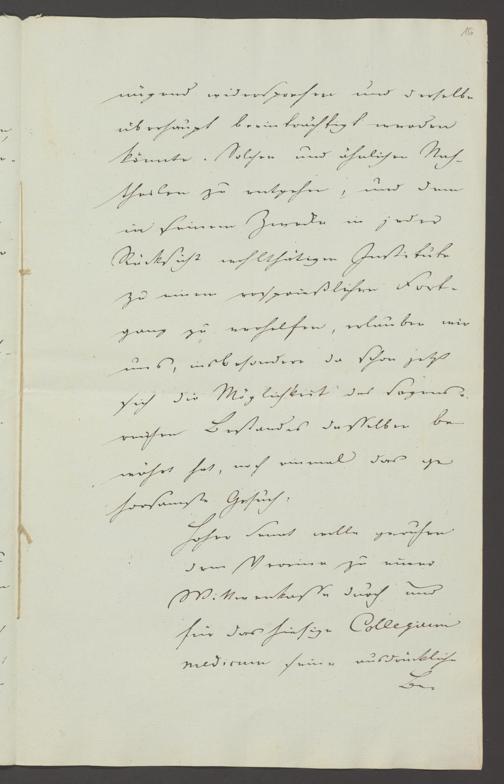 16
nügend widersprochen und derselbe
überhaupt beeinträchtigt werden
könnte. Solchen und ähnlichen Nach-
theilen zu entgehen, und dem
in seinem Zwecke in jeder
Rücksicht wohlthätigen Institute
zu einem ersprießlichen Fort-
gang zu verhelfen, erlauben wir
uns, insbesondere da schon jetzt
sich die Möglichkeit des segens-
reichen Bestandes desselben be
währt hat, noch einmal das ge
horsamste Gesuch:
Hoher Senat wolle geruhen
dem Vereine zu einer
Wittwenkasse durch uns
für das hiesige Collegium
medicum seine ausdrückliche
Be-